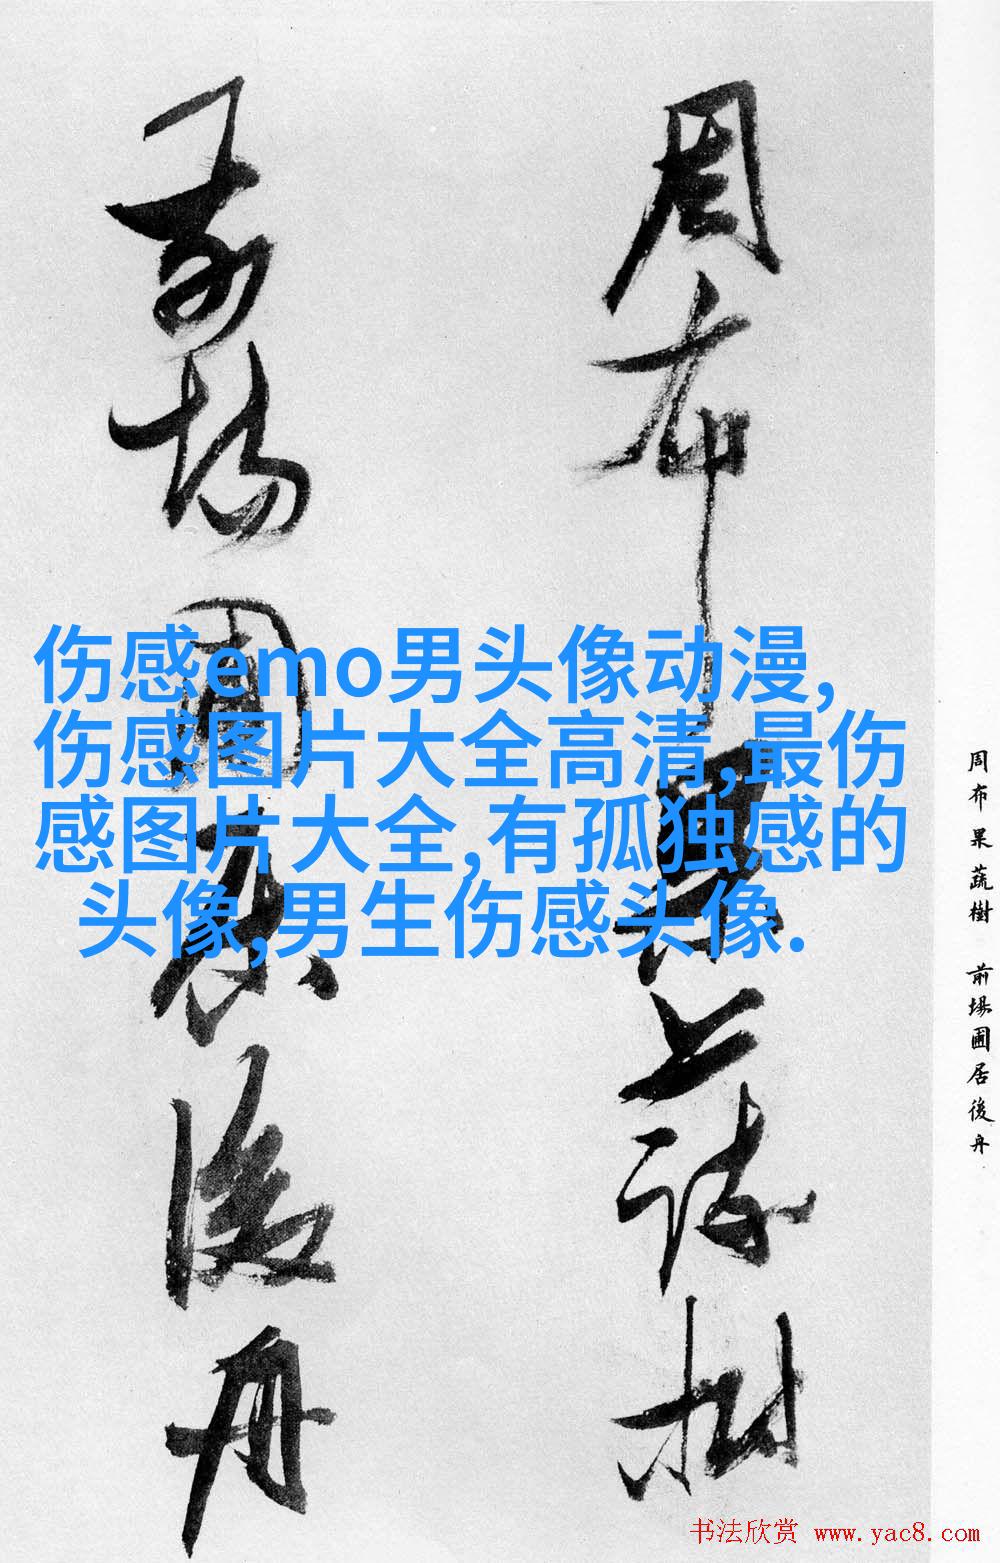 周布果蔬樹
前場圃居後舟
伤感emo男头像动漫,
伤感图片大全高清,最伤
感图片大全,有孤独感的
头像,男生伤感头像.
周布果蔬樹 前場圃居後舟
书法欣赏 www.yac8.com